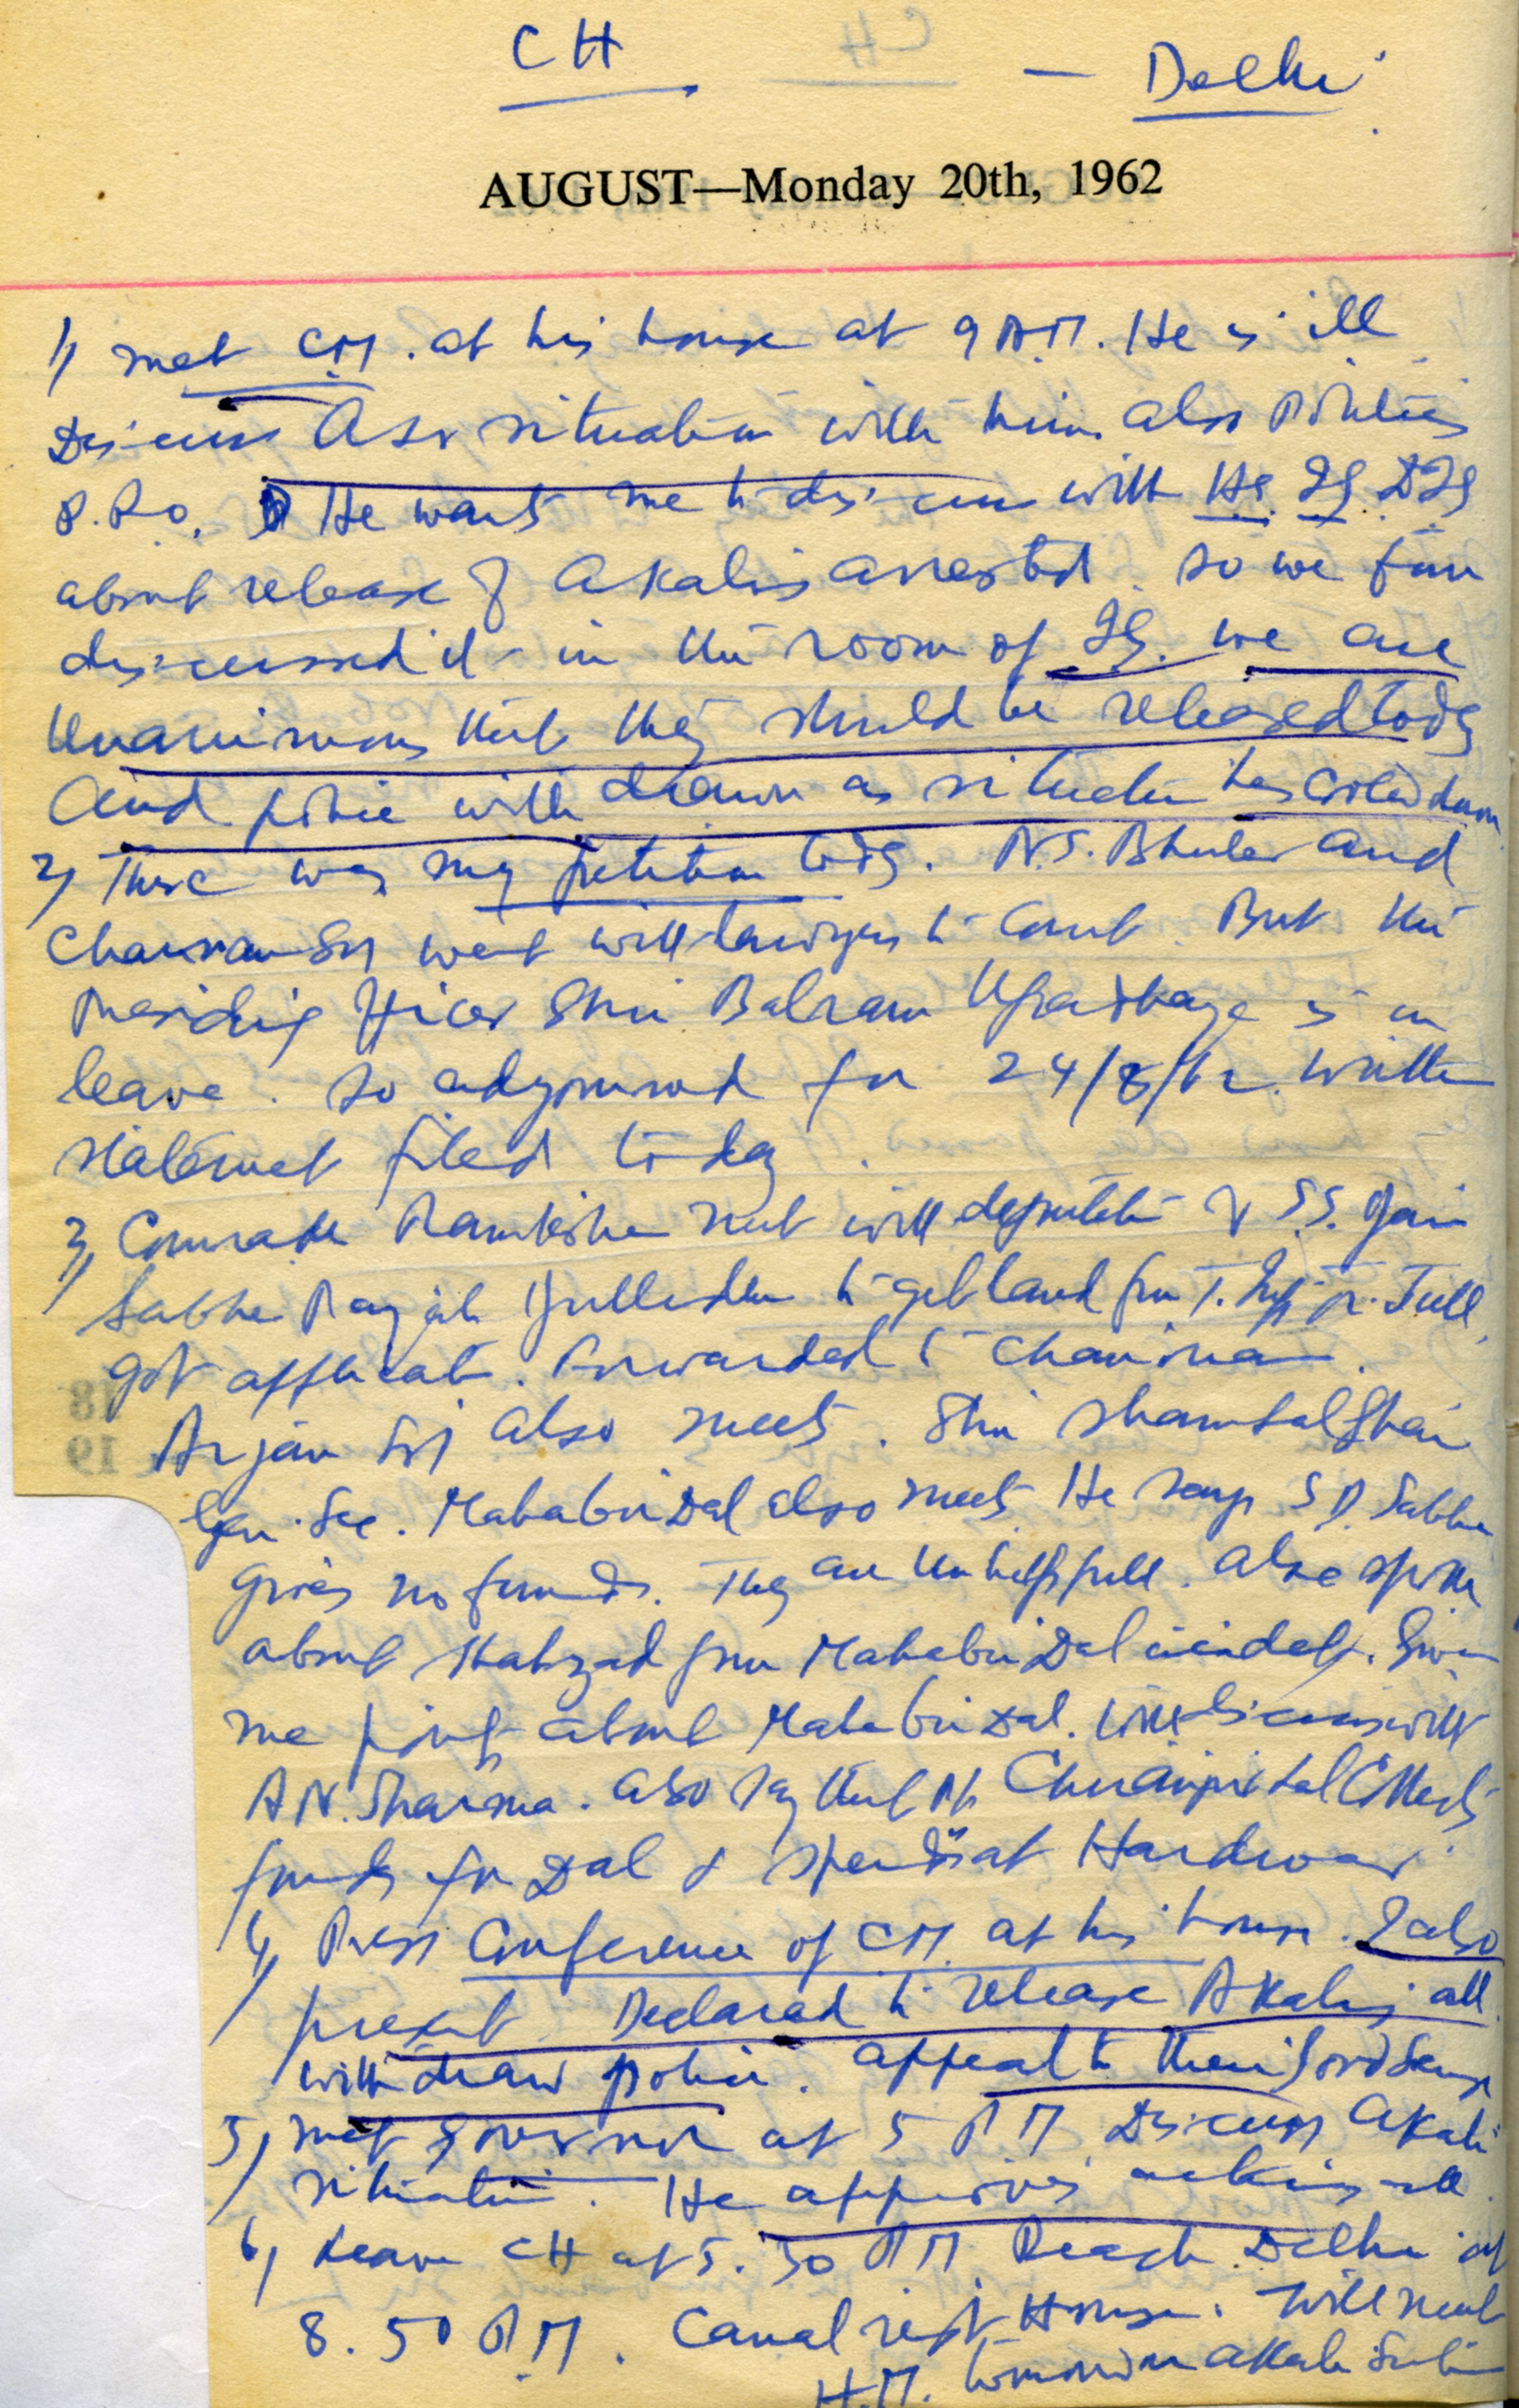 CH — Delhi
AUGUST—Monday 20th, 1962
1) met CM. at his house at 9 A.M. He is ill
Discuss Asr situation with him. also Politics
He wants me to discuss with HS. IG DIG
about release of Akalis arrested. so we four
discussed it in the room of IG. we are
Unanimous that they should be released tody
and police withdrawn as situation has cooled down
2) There was my petition tody. N.S. Bhuler and
Charan Sn went with lawyers to Court. But the
Presiding Officer Shri Balram Upadhaya is on
leave. so adjourned for 24/8/62. written
statement filed to day
3) Comrade Ramkishen met with deputation of S.S. Jain
Sabha Jullundur to get land from T. Jull.
got applicat. Forwarded to Chairman.
Arjan also meets. Shri Sham Lal Ghai
Gen. Sec. Mahabir Dal also meets He says S D. Sabha
gives no funds. They are Unhelpfull. also spoke
about Shahzad from Mahabir Dal incident. Given
me points about Mahabir Dal. Will discuss with
A N. Sharma. also say that Pt. Chiranji Lal Collects
funds for Dal & spends at Hardwar.
4) Press Conference of CM. at his house. I also
present. Declared to release Akalis all
with draw police. appeal to their good sense
5) met Governor at 5 PM Discuss Akali
situation. He approves action
6) Leave CH at 5.30 PM Reach Delhi at
8.50 PM. Canal rest House. Will meet
H.M. tomorrow Akali